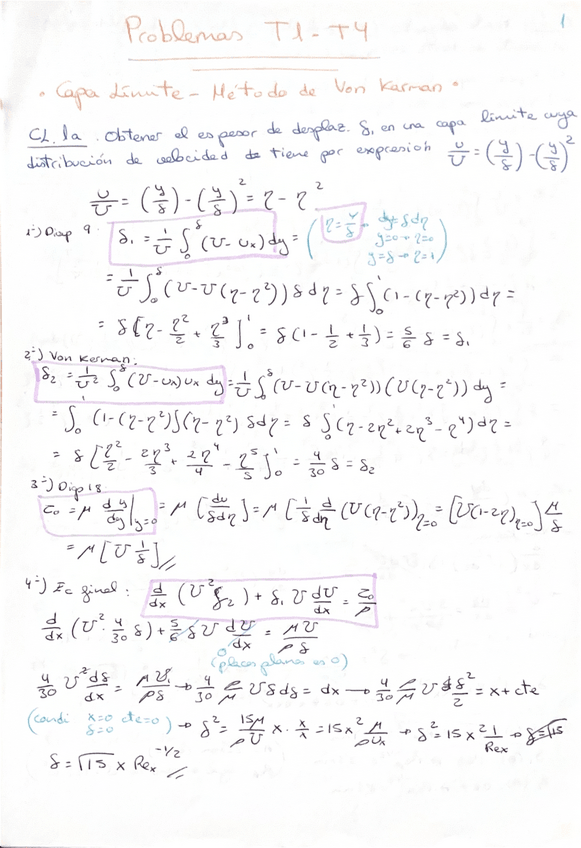 Problemas T1-T4
1
• Capa Límite - Método de Von Karman •
CL.1a. Obtener el espesor de desplaz. δ₁ en una capa límite cuya
distribución de velocidad de tiene por expresión u/U = (y/δ) - (y/δ)²
u/U = (y/δ) - (y/δ)² = η - η²
1º) Diap 9. δ₁ = 1/U ∫₀^δ (U - ux) dy = ( η = y/δ → dy = δdη y=0 → η=0 y=δ → η=1 )
= 1/U ∫₀^δ (U - U(η-η²)) δ dη = δ ∫₀^1 (1 - (η-η²)) dη =
= δ [η - η²/2 + η³/3]₀^1 = δ (1 - 1/2 + 1/3) = 5/6 δ = δ₁
2º) Von Kerman:
δ₂ = 1/U² ∫₀^δ (U - ux) ux dy = 1/U ∫₀^δ (U - U(η-η²)) (U(η-η²)) dy =
= ∫₀^1 (1 - (η-η²)) (η-η²) δdη = δ ∫₀^1 (η - 2η² + 2η³ - η⁴) dη =
= δ [η²/2 - 2η³/3 + 2η⁴/4 - η⁵/5]₀^1 = 4/30 δ = δ₂
3º) Diap 18.
τ₀ = μ dy/dy|y=0 = μ [du/δdη] = μ [1/δ d/dη (U(η-η²))]η=0 = [U(1-2η)η=0] μ/δ
= μ [U 1/δ] //
4º) Ec final: d/dx (U² δ₂) + δ₁ U dU/dx = τ₀/ρ
d/dx (U² · 4/30 δ) + 5/6 δ U dU/dx = μU/ρδ
0 (placas planas es 0)
4/30 U² dδ/dx = μU/ρδ → 4/30 ρ/μ U δ dδ = dx → 4/30 ρ/μ U δ²/2 = x + cte
(condi x=0 δ=0 cte=0) → δ² = 15μ/ρU x · x/x = 15x² μ/ρUx → δ² = 15x² 1/Rex → δ = √15
δ = √15 x Rex^-1/2 //